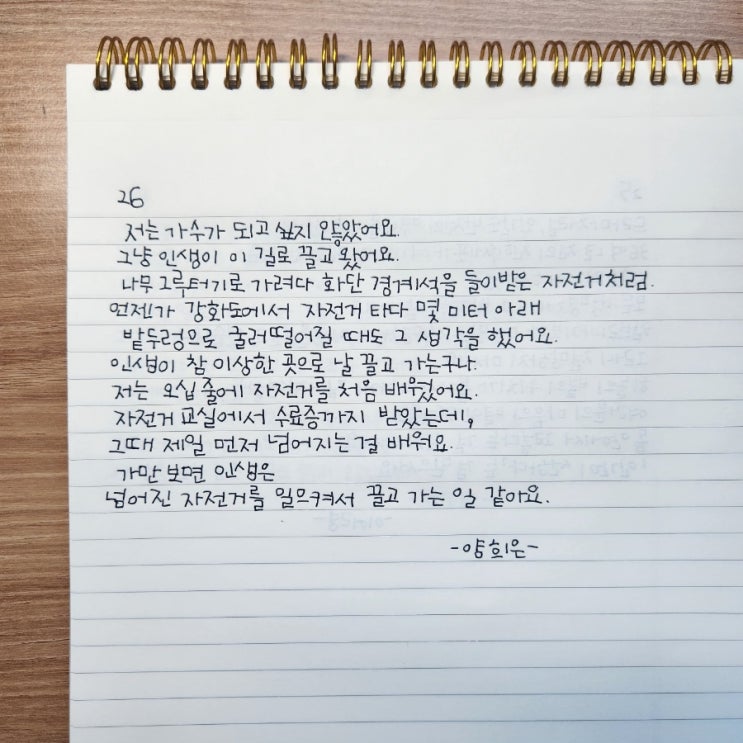 26
저는 가수가 되고 싶지 않았어요.
그냥 인생이 이 길로 끌고 왔어요.
나무 그루터기로 가려다 화단 경계석을 들이받은 자전거처럼.
언젠가 강화도에서 자전거 타다 몇 미터 아래
밭두렁으로 굴러떨어질 때도 그 생각을 했어요.
인생이 참 이상한 곳으로 날 끌고 가는구나.
저는 오십 줄에 자전거를 처음 배웠어요.
자전거 교실에서 수료증까지 받았는데,
그때 제일 먼저 넘어지는 걸 배워요.
가만 보면 인생은
넘어진 자전거를 일으켜서 끌고 가는 일 같아요.
-양희은-